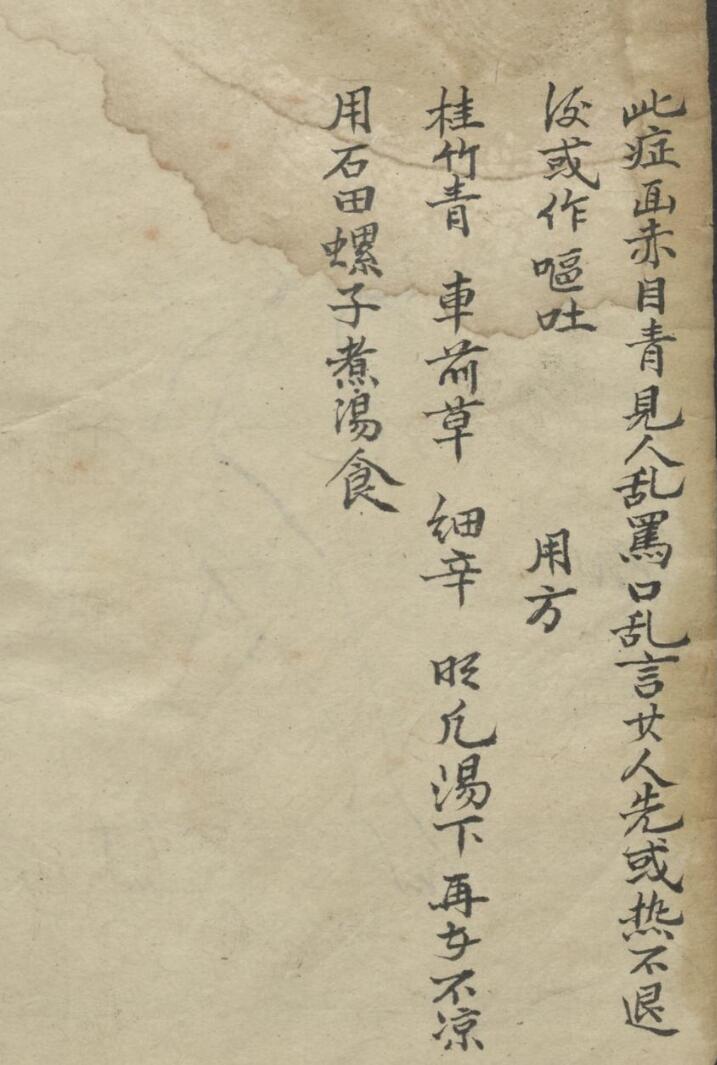 此症面赤目青見人乱罵口乱言女人先或热不退
後或作嘔吐 用方
桂竹青 車前草 细辛 明凡湯下再不凉
用石田螺子煮湯食